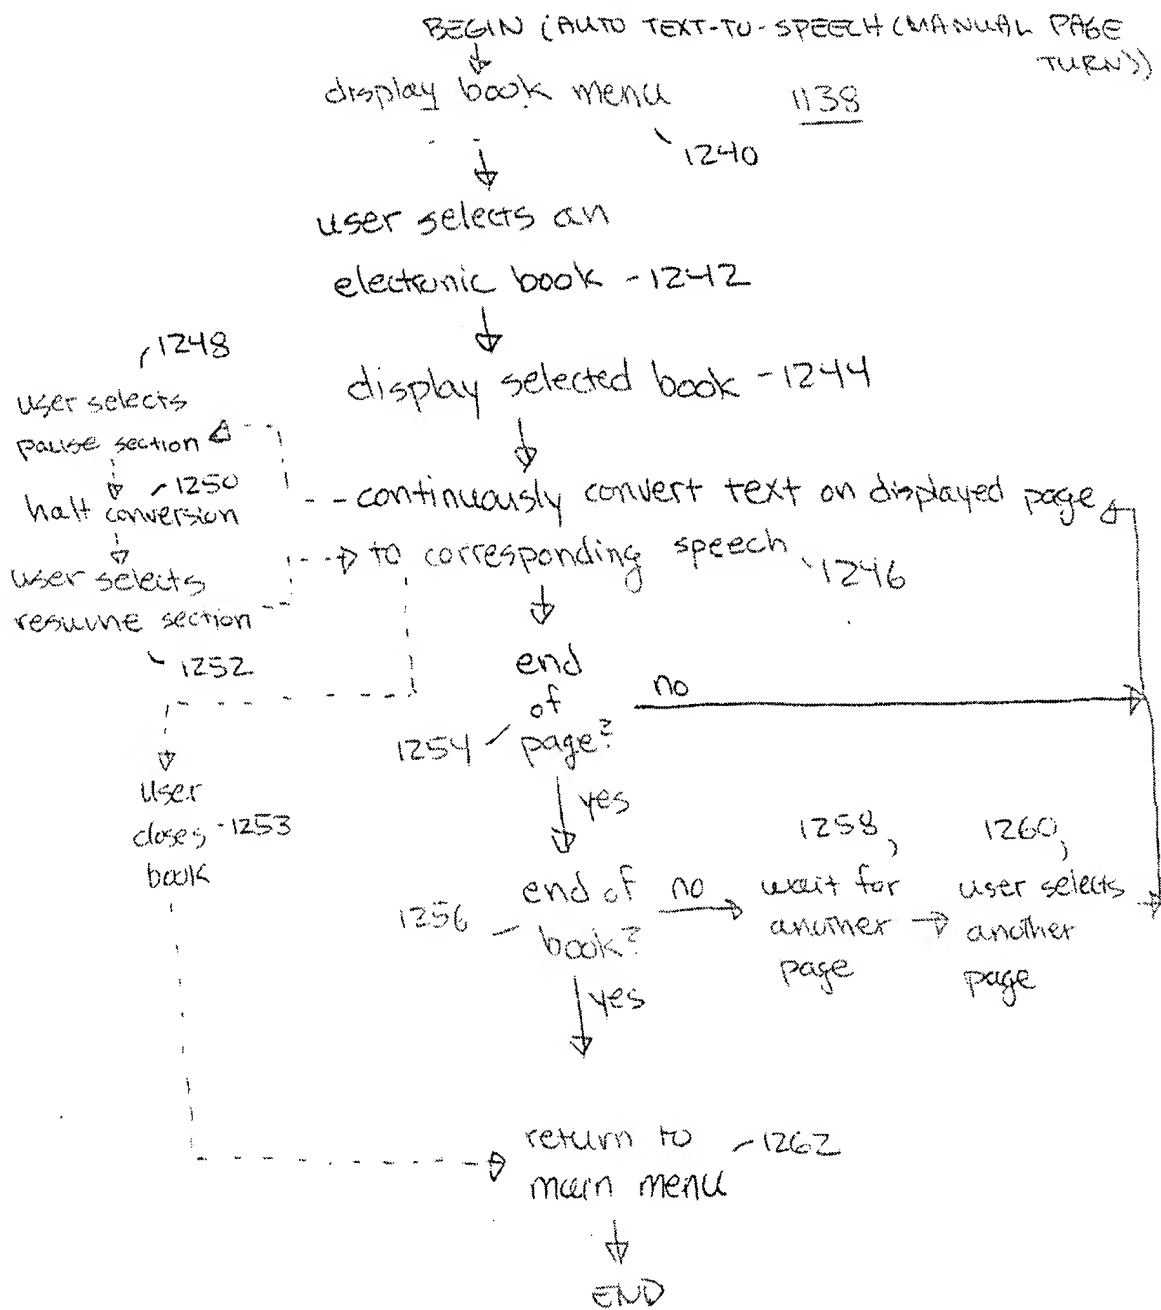 BEGIN (AUTO TEXT-TO-SPEECH (MANUAL PAGE
TURN))
display book menu
1138
1240
user selects an
electronic book - 1242
display selected book - 1244
1248
user selects
pause section
1250
halt conversion
user selects
resume section
1252
continuously convert text on displayed page
to corresponding speech
1246
end
of
page?
no
1254
yes
user
closes - 1253
book
end of
book?
1256
no
1258
wait for
another
page
1260
user selects
another
page
yes
return to
main menu
1262
END